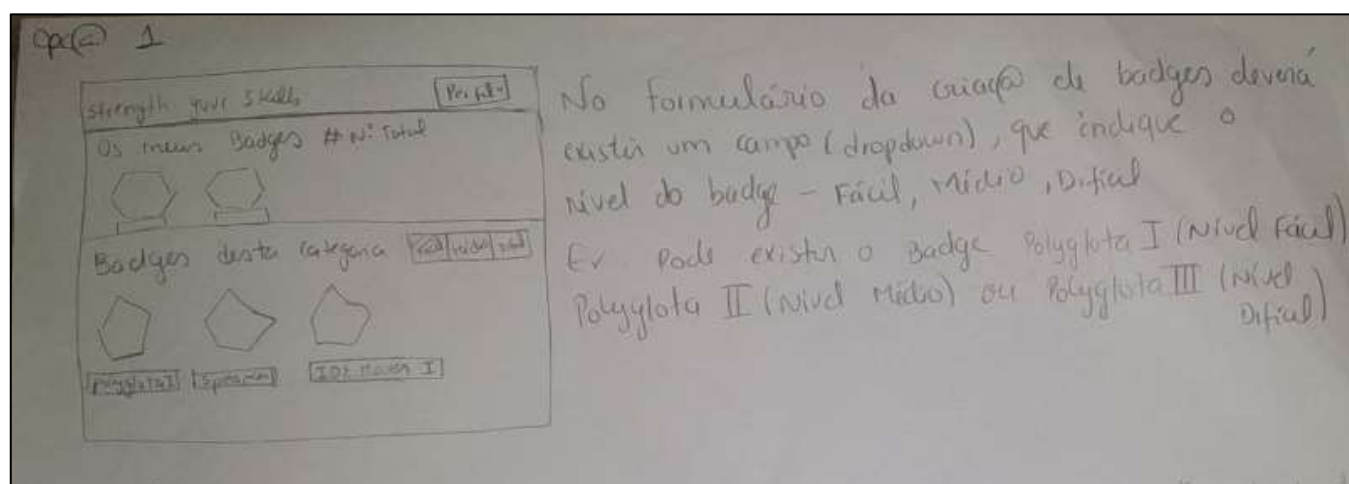 Opç@ 1
strength your Skills
Perfil
Os meus Badges # Nº Total
Badges desta categoria Fácil Médio Difícil
Polyglota I
I
No formulário da criaç@ de badges deverá
existir um campo (dropdown), que indique o
nível do badge - Fácil, Médio, Difícil
Ex Pode existir o Badge Polyglota I (Nível Fácil)
Polyglota II (Nível Médio) ou Polyglota III (Nível
Difícil)